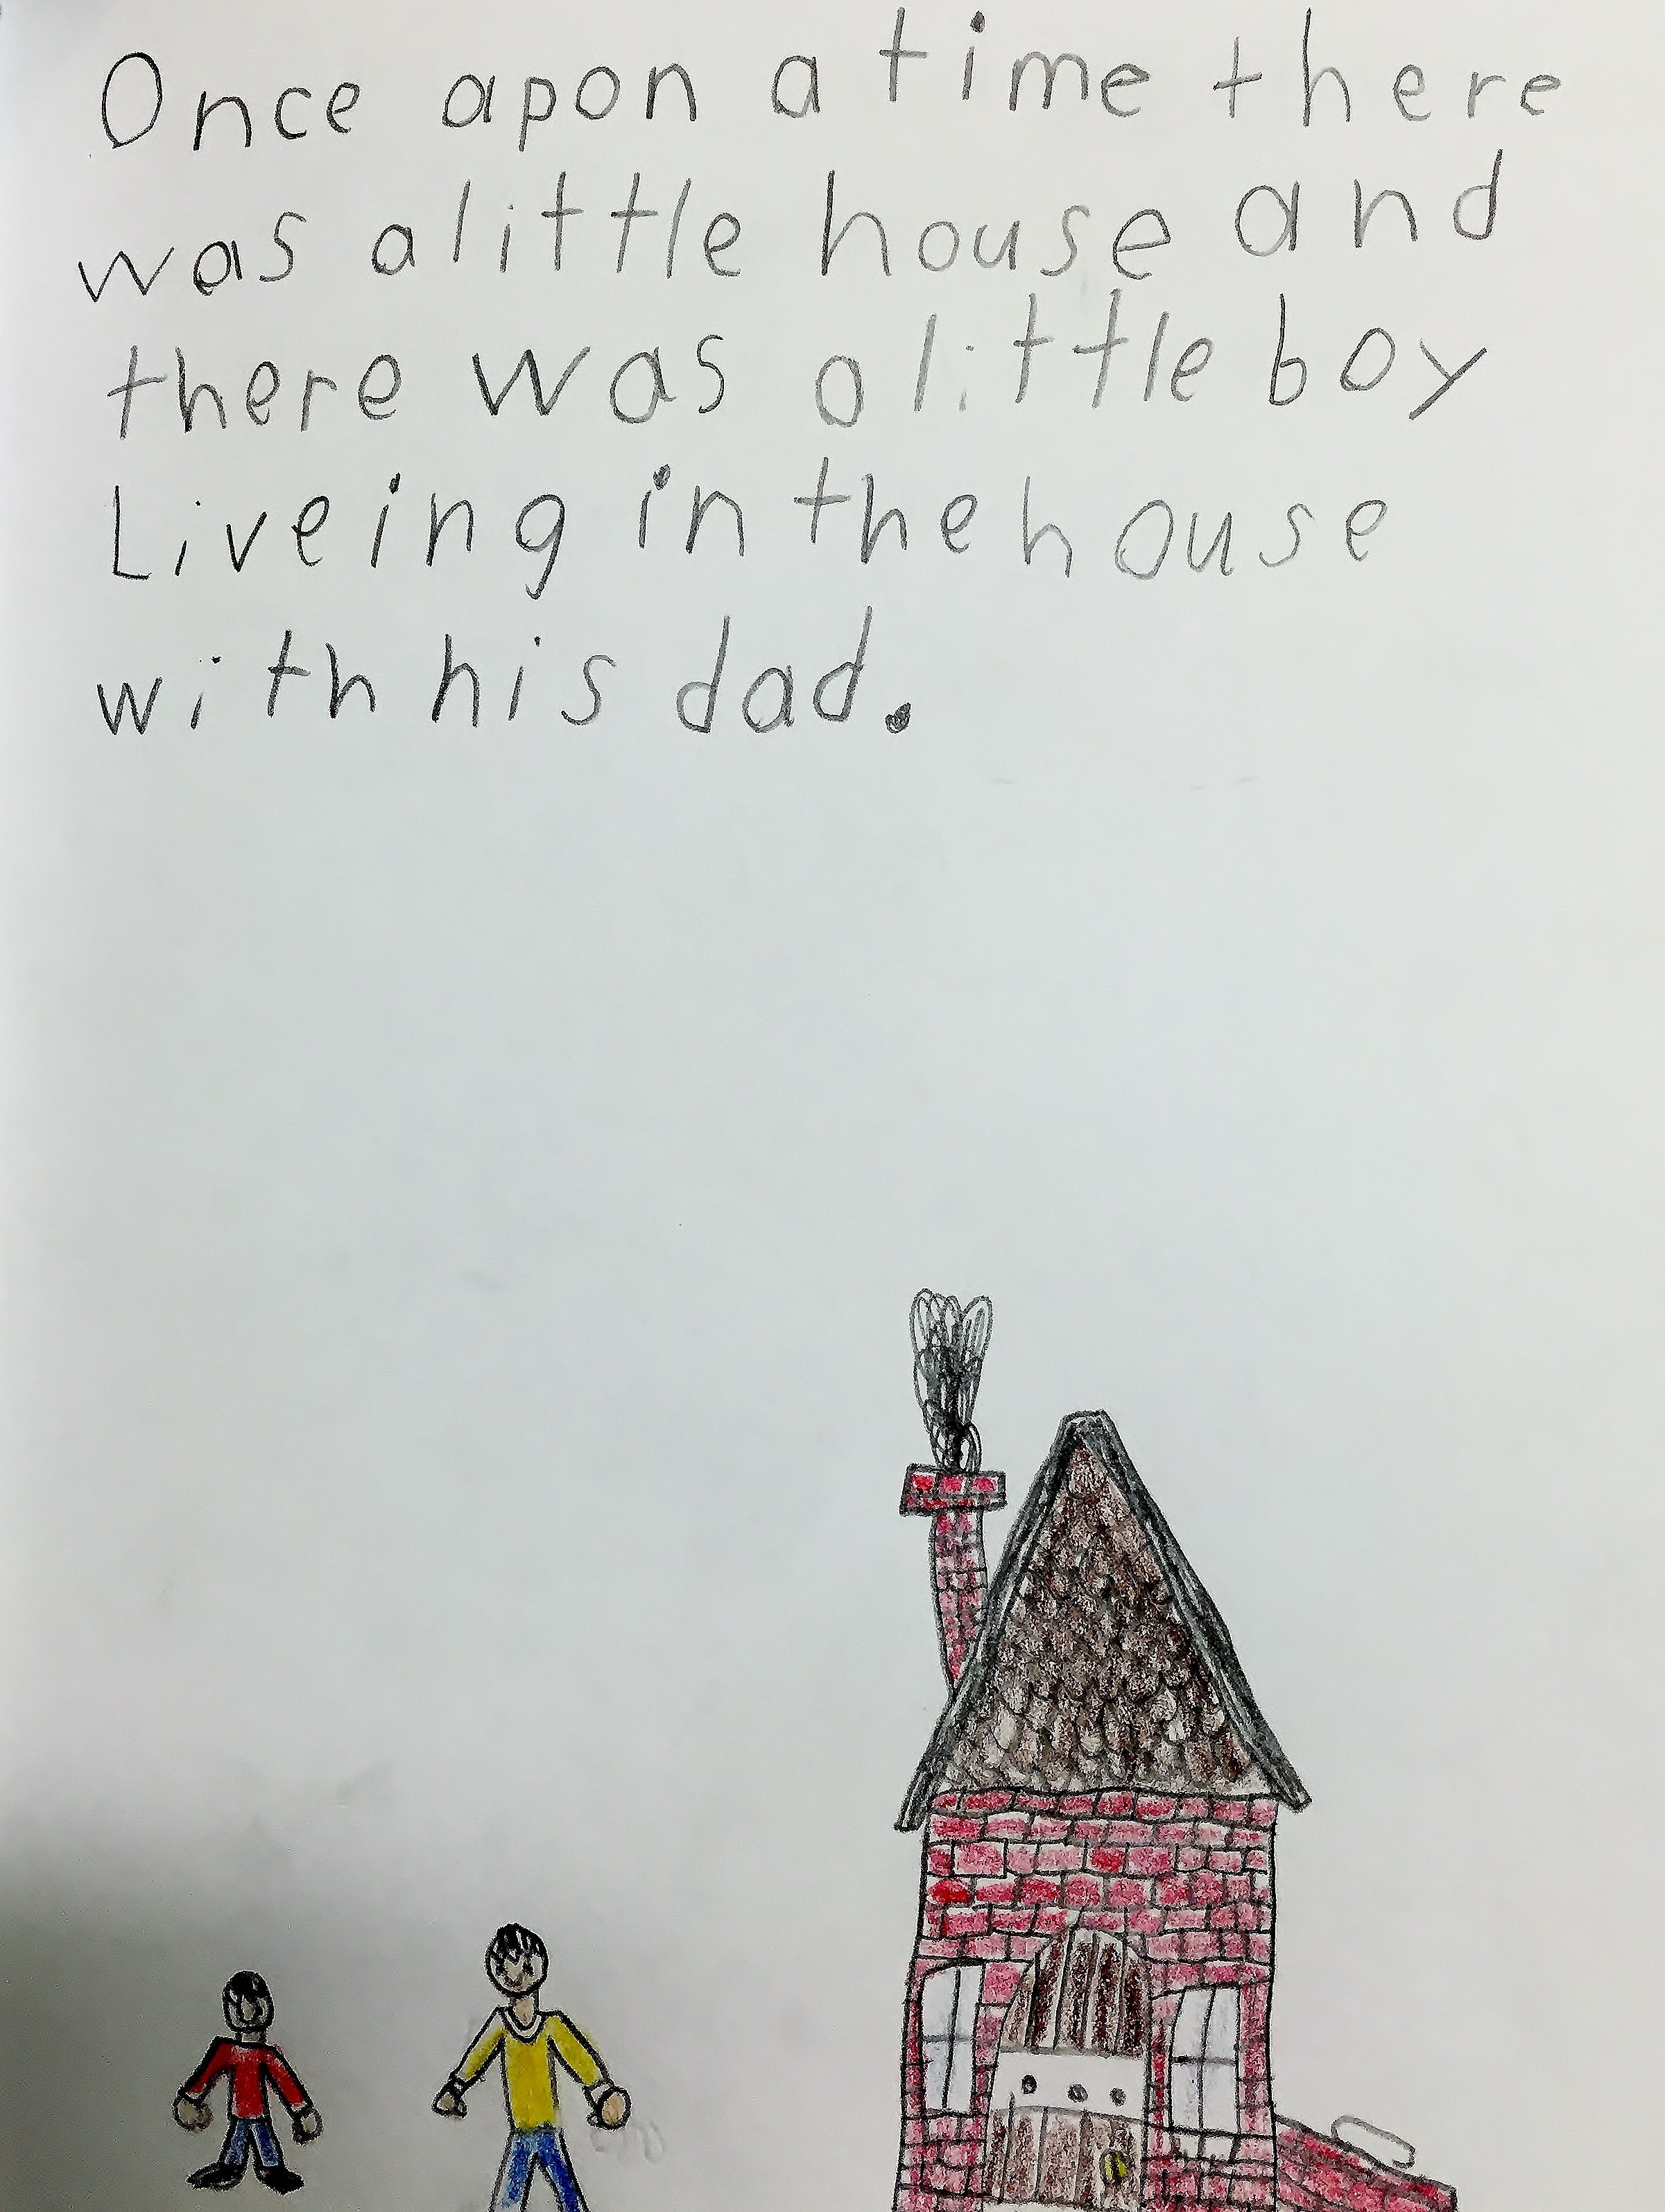 Once apon a time there
was a little house and
there was a little boy
Liveing in the house
with his dad.